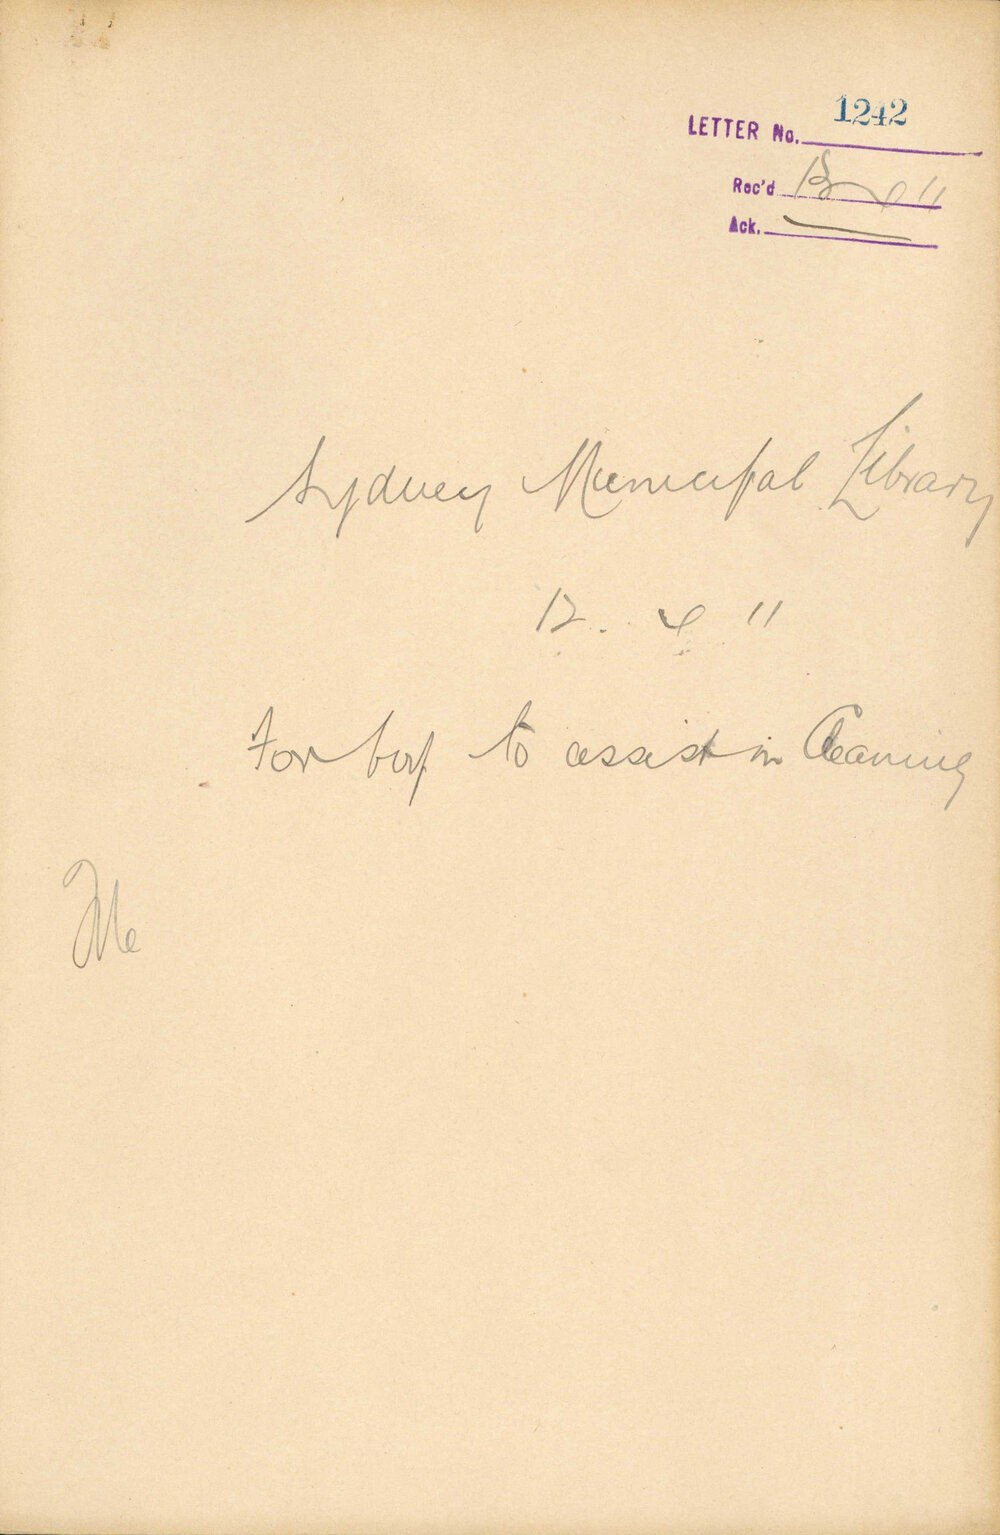 LETTER No. 1242
Rec'd 13 4 11
Ack. —
Sydney Municipal Library
12. 4 11
For boy to assist in Cleaning
File